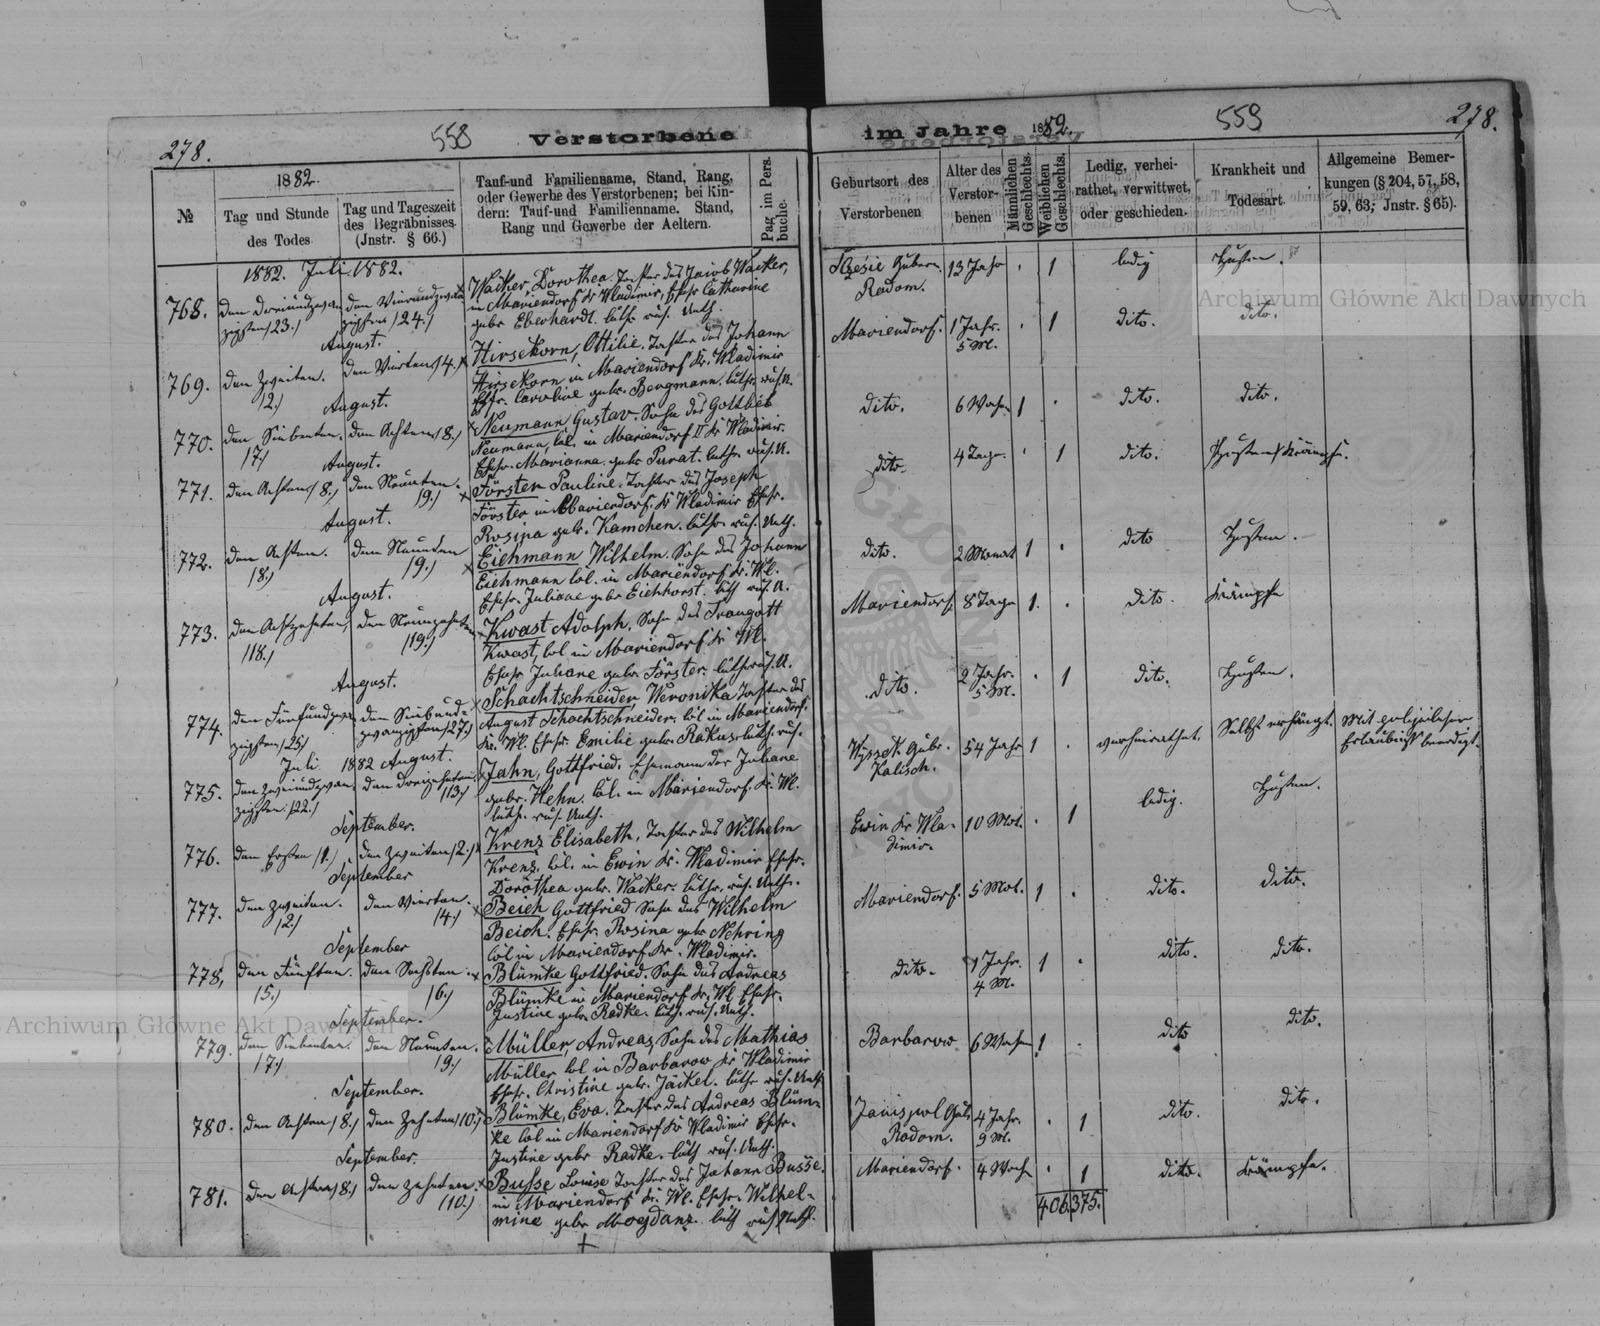 278.
558
Verstorbene
im Jahre 1882.
559
278.
№
1882.
Tag und Stunde
des Todes
Tag und Tageszeit
des Begräbnisses.
(Jnstr. § 66.)
Tauf-und Familienname, Stand, Rang,
oder Gewerbe des Verstorbenen; bei Kin-
dern: Tauf-und Familienname. Stand,
Rang und Gewerbe der Aeltern.
Pag im Pers.
buche.
Geburtsort des
Verstorbenen
Alter des
Verstor-
benen
Männlichen
Geschlechts.
Weiblichen
Geschlechts.
Ledig, verhei-
rathet, verwittwet,
oder geschieden.
Krankheit und
Todesart.
Allgemeine Bemer-
kungen (§ 204, 57, 58,
59, 63; Jnstr. § 65).
1882. Juli 1882.
768. den Dreiundzwan
zigsten /23./
den Vierundzwan
zigsten /24./
Wacker, Dorothea, Tochter des Jacob Wacker,
in Mariendorf Kr Wladimir, Ehefr Catharine
gebr Eberhardt. luth. russ. Unth.
Gubern.
Radom.
13 Jahr
1
ledig
Husten.
August.
769. den Zweiten.
/2./
den Vierten /4./
Hirsekorn, Ottilie. Tochter des Johann
Hirsekorn in Mariendorf Kr. Wladimir
Ehfr. Caroline gebr. Bengmann. luthr. russ. U.
Mariendorf.
1 Jahr.
5 M.
1
dito.
dito.
August.
770. den Siebenten.
/7./
den Achten /8./
Neumann, Gustav. Sohn des Gottlieb
Neumann, Col. in Mariendorf II Kr Wladimir.
Ehefr. Marianna, gebr Purat. luthr. russ. U.
dito.
6 Woch.
1
dito.
dito.
August.
771. den Achten /8./
den Neunten.
/9./
Förster Pauline. Tochter des Joseph
Förster in Mariendorf. Kr Wladimir Ehefr.
Rosina gebr. Kamchen. luthr. russ. Unth.
dito.
4 Tage.
1
dito.
Husten/Krämpfe.
August.
772. den Achten.
/8./
den Neunten
/9./
Eichmann, Wilhelm. Sohn des Johann
Eichmann Col. in Mariendorf Kr. Wl.
Ehefr. Juliane gebr Eichhorst. luth russ. U.
dito.
2 Monat
1
dito
Husten.
August.
773. den Achtzehnten,
/18./
den Neunzehnten
/19./
Kwast Adolph. Sohn des Traugott
Kwast, Col in Mariendorf Kr Wl.
Ehefr Juliane gebr Förster. luth russ. U.
Mariendorf.
8 Tage
1.
dito.
Krämpfe
August.
774. den Fünfundzwan
zigsten /25/
den Siebund=
zwanzigsten /27./
Schachtschneider, Weronika Tochter des
August Schachtschneider, Col in Mariendorf.
Kr. Wl. Ehefr. Emilie gebr. Rakus luth. russ.
dito.
2 Jahr.
5 M.
1
dito.
Husten.
Juli 1882 August.
775. den Zweiundzwan
zigsten. /22./
den Dreizehnten
/13./
Jahn, Gottfried. Ehemann der Juliane
gebr. Hehn. Col. in Mariendorf. Kr. Wl.
luth. russ. Unth.
Gubr.
Kalisch.
54 Jahr
1
verheirathet.
Selbst erhängt.
Mit polizeilicher
Erlaubniß beerdigt.
September.
776. den Ersten /1./
den Zweiten /2./
Krenz Elisabeth, Tochter des Wilhelm
Krenz, Col. in Ewin Kr. Wladimir Ehefr.
Dorothea gebr. Wacker. luthr. russ. Unth.
Ewin Kr Wla-
dimir.
10 Mot.
1
ledig.
Husten.
September
777. den Zweiten.
/2./
den Vierten.
/4./
Beich Gottfried Sohn des Wilhelm
Beich. Ehefr. Rosina gebr Nehring
Col in Mariendorf Kr. Wladimir.
Mariendorf.
5 Mot.
1
dito.
dito.
September
778, den Fünften.
/5./
den Sechsten.
/6./
Blümke Gottfried. Sohn des Andreas
Blümke in Mariendorf Kr. Wl Ehefr.
Justine gebr. Radke. luth. russ. Unth.
dito.
1 Jahr.
4 M.
1
dito.
dito.
September.
779. den Siebenten.
/7./
den Neunten.
/9./
Müller, Andreas, Sohn des Mathias
Müller Col in Barbarow Kr Wladimir
Ehefr. Christine gebr. Jäckel. luthr russ. Unth
Barbarow
6 Wochen
1
dito
dito.
September.
780. den Achten /8./
den Zehnten /10./
Blümke, Eva. Tochter des Andreas Blüm-
ke Col in Mariendorf Kr Wladimir Ehefr.
Justine gebr Radke. luth russ. Unth.
Janispol Gub.
Radom.
4 Jahr.
9 M.
1
dito.
dito.
September.
781. den Achten /8./
den Zehnten.
/10./
Busse Louise Tochter des Johann Busse.
in Mariendorf Kr. Wl. Ehefr. Wilhel-
mine gebr Mogdanz. luth russ Unth.
Mariendorf.
4 Woch
1
dito.
Krämpfe.
406 375.
Archiwum Główne Akt Dawnych
Archiwum Główne Akt Dawnych